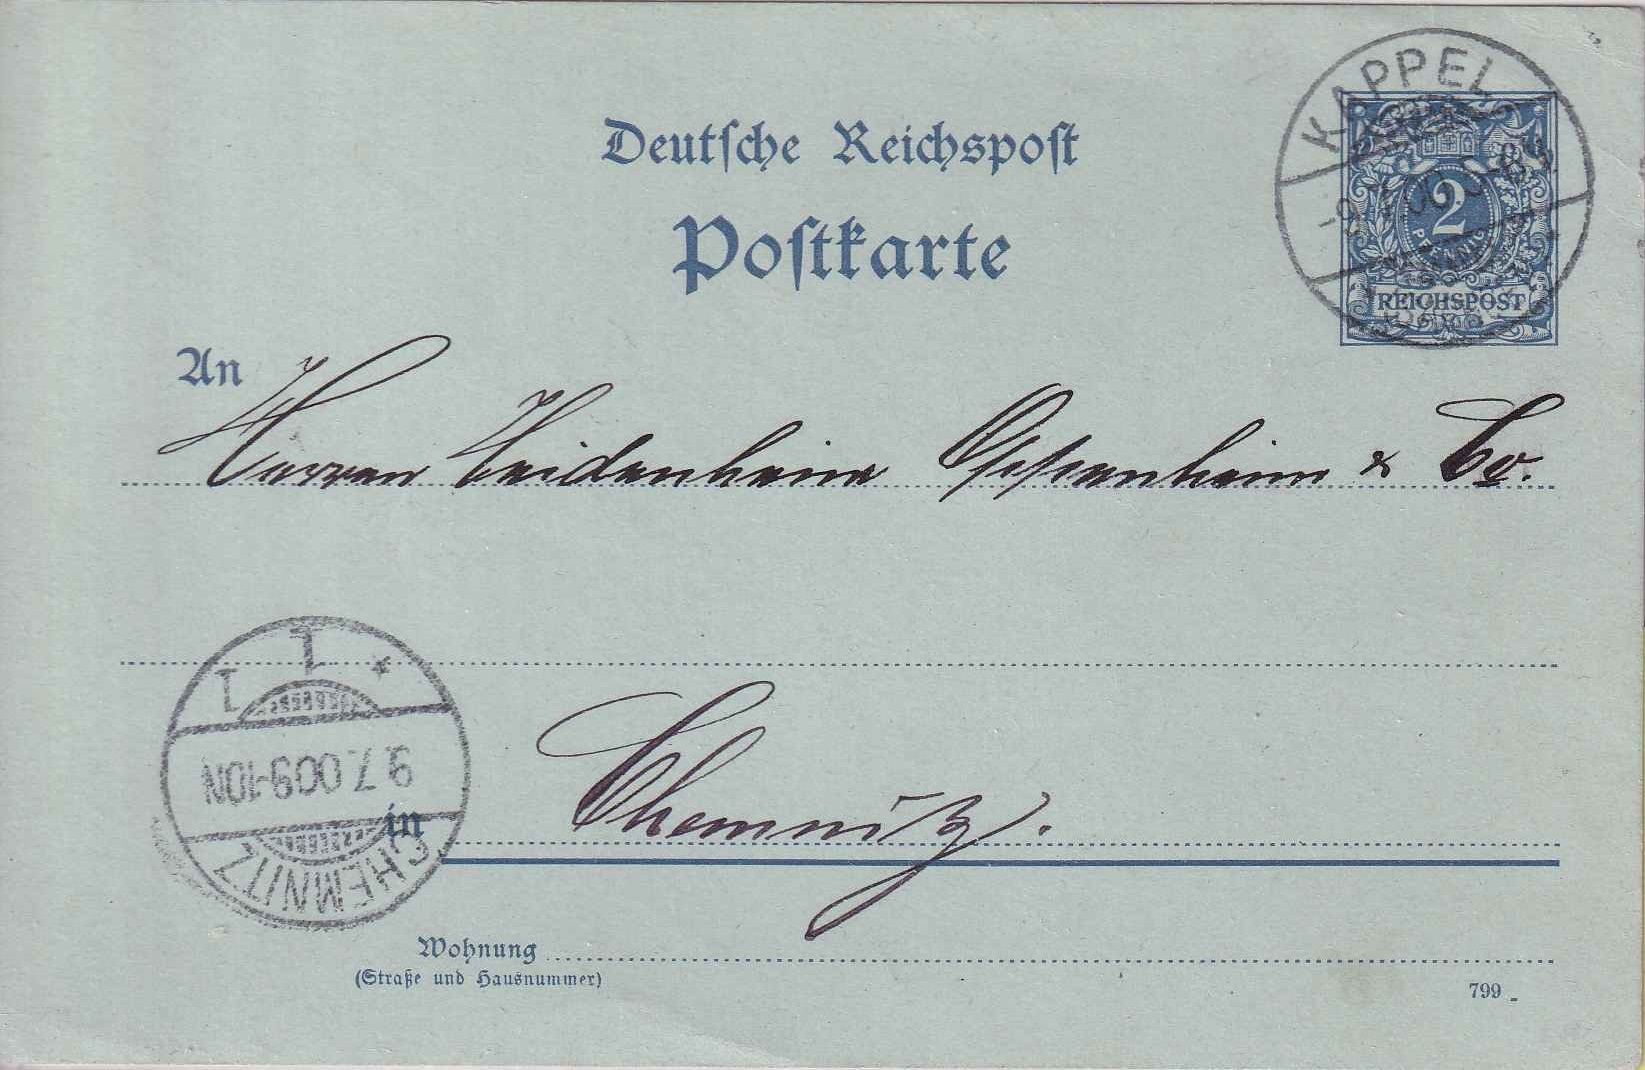 Deutsche Reichspost
Postkarte
KAPPEL
9. 7. 00
2
PFENNIG
REICHSPOST
An
Herren Heidenheim Oppenheim & Co.
1
1 *
9.7.00 9-10N
CHEMNITZ
in Chemnitz.
Wohnung
(Straße und Hausnummer)
799